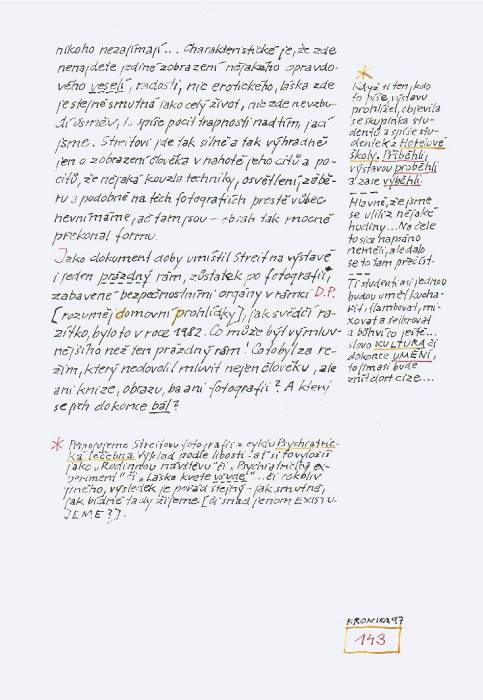 nikoho nezajímají... Charakteristické je, že zde
nenajdete jediné zobrazení nějakého opravdo-
vého veselí, radosti, nic erotického, láska zde
je stejně smutná jako celý život, nic zde nevzbu-
dí úsměv, to spíše pocit trapnosti nad tím, jací
jsme. Streitovi jde tak silně a tak výhradně
jen o zobrazení člověka v nahotě jeho citů a po-
citů, že nějaká kouzla techniky, osvětlení, zábě-
ru a podobně na těch fotografiích prostě vůbec
nevnímáme, ač tam jsou - obsah tak mocně
překonal formu.
Jako dokument doby umístil Streit na výstavě
i jeden prázdný rám, zůstatek po fotografii,
zabavené bezpečnostními orgány v rámci D.P.
[rozuměj domovní prohlídky], jak svědčí ra-
zítko, bylo to v roce 1982. Co může být výmluv-
nějšího než ten prázdný rám! Co to byl za re-
žim, který nedovolil mluvit nejen člověku, ale
ani knize, obrazu, ba ani fotografii? A který
se jich dokonce bál?
* Připojujeme Streitovu fotografii z cyklu Psychiatric-
ká léčebna. Výklad podle libosti - ať si to vyložíš
jako „Rodinnou návštěvu" či „Psychiatrický ex-
periment" či „Láska kvete všude"... či cokoliv
jiného, výsledek je pořád stejný - jak smutně,
jak bídně tady žijeme [či snad jenom EXISTU-
JEME?].
*
Když si ten, kdo
to píše, výstavu
prohlížel, objevila
se skupinka stu-
dentů a spíše stu-
dentek z Hotelové
školy. Přiběhli,
výstavou proběhli
a zase vyběhli.
Hlavně, že jsme
se ulili z nějaké
hodiny... Na čele
to sice napsáno
neměli, ale dalo
se to tam přečíst.
Ti studenti asi jednou
budou umět kucha-
řit i flambovat, mí-
xovat a šejkrovat
a bůhví co ještě...
slovo KULTURA či
dokonce UMĚNÍ,
to jim asi bude
znít dost cize...
KRONIKA 97
143